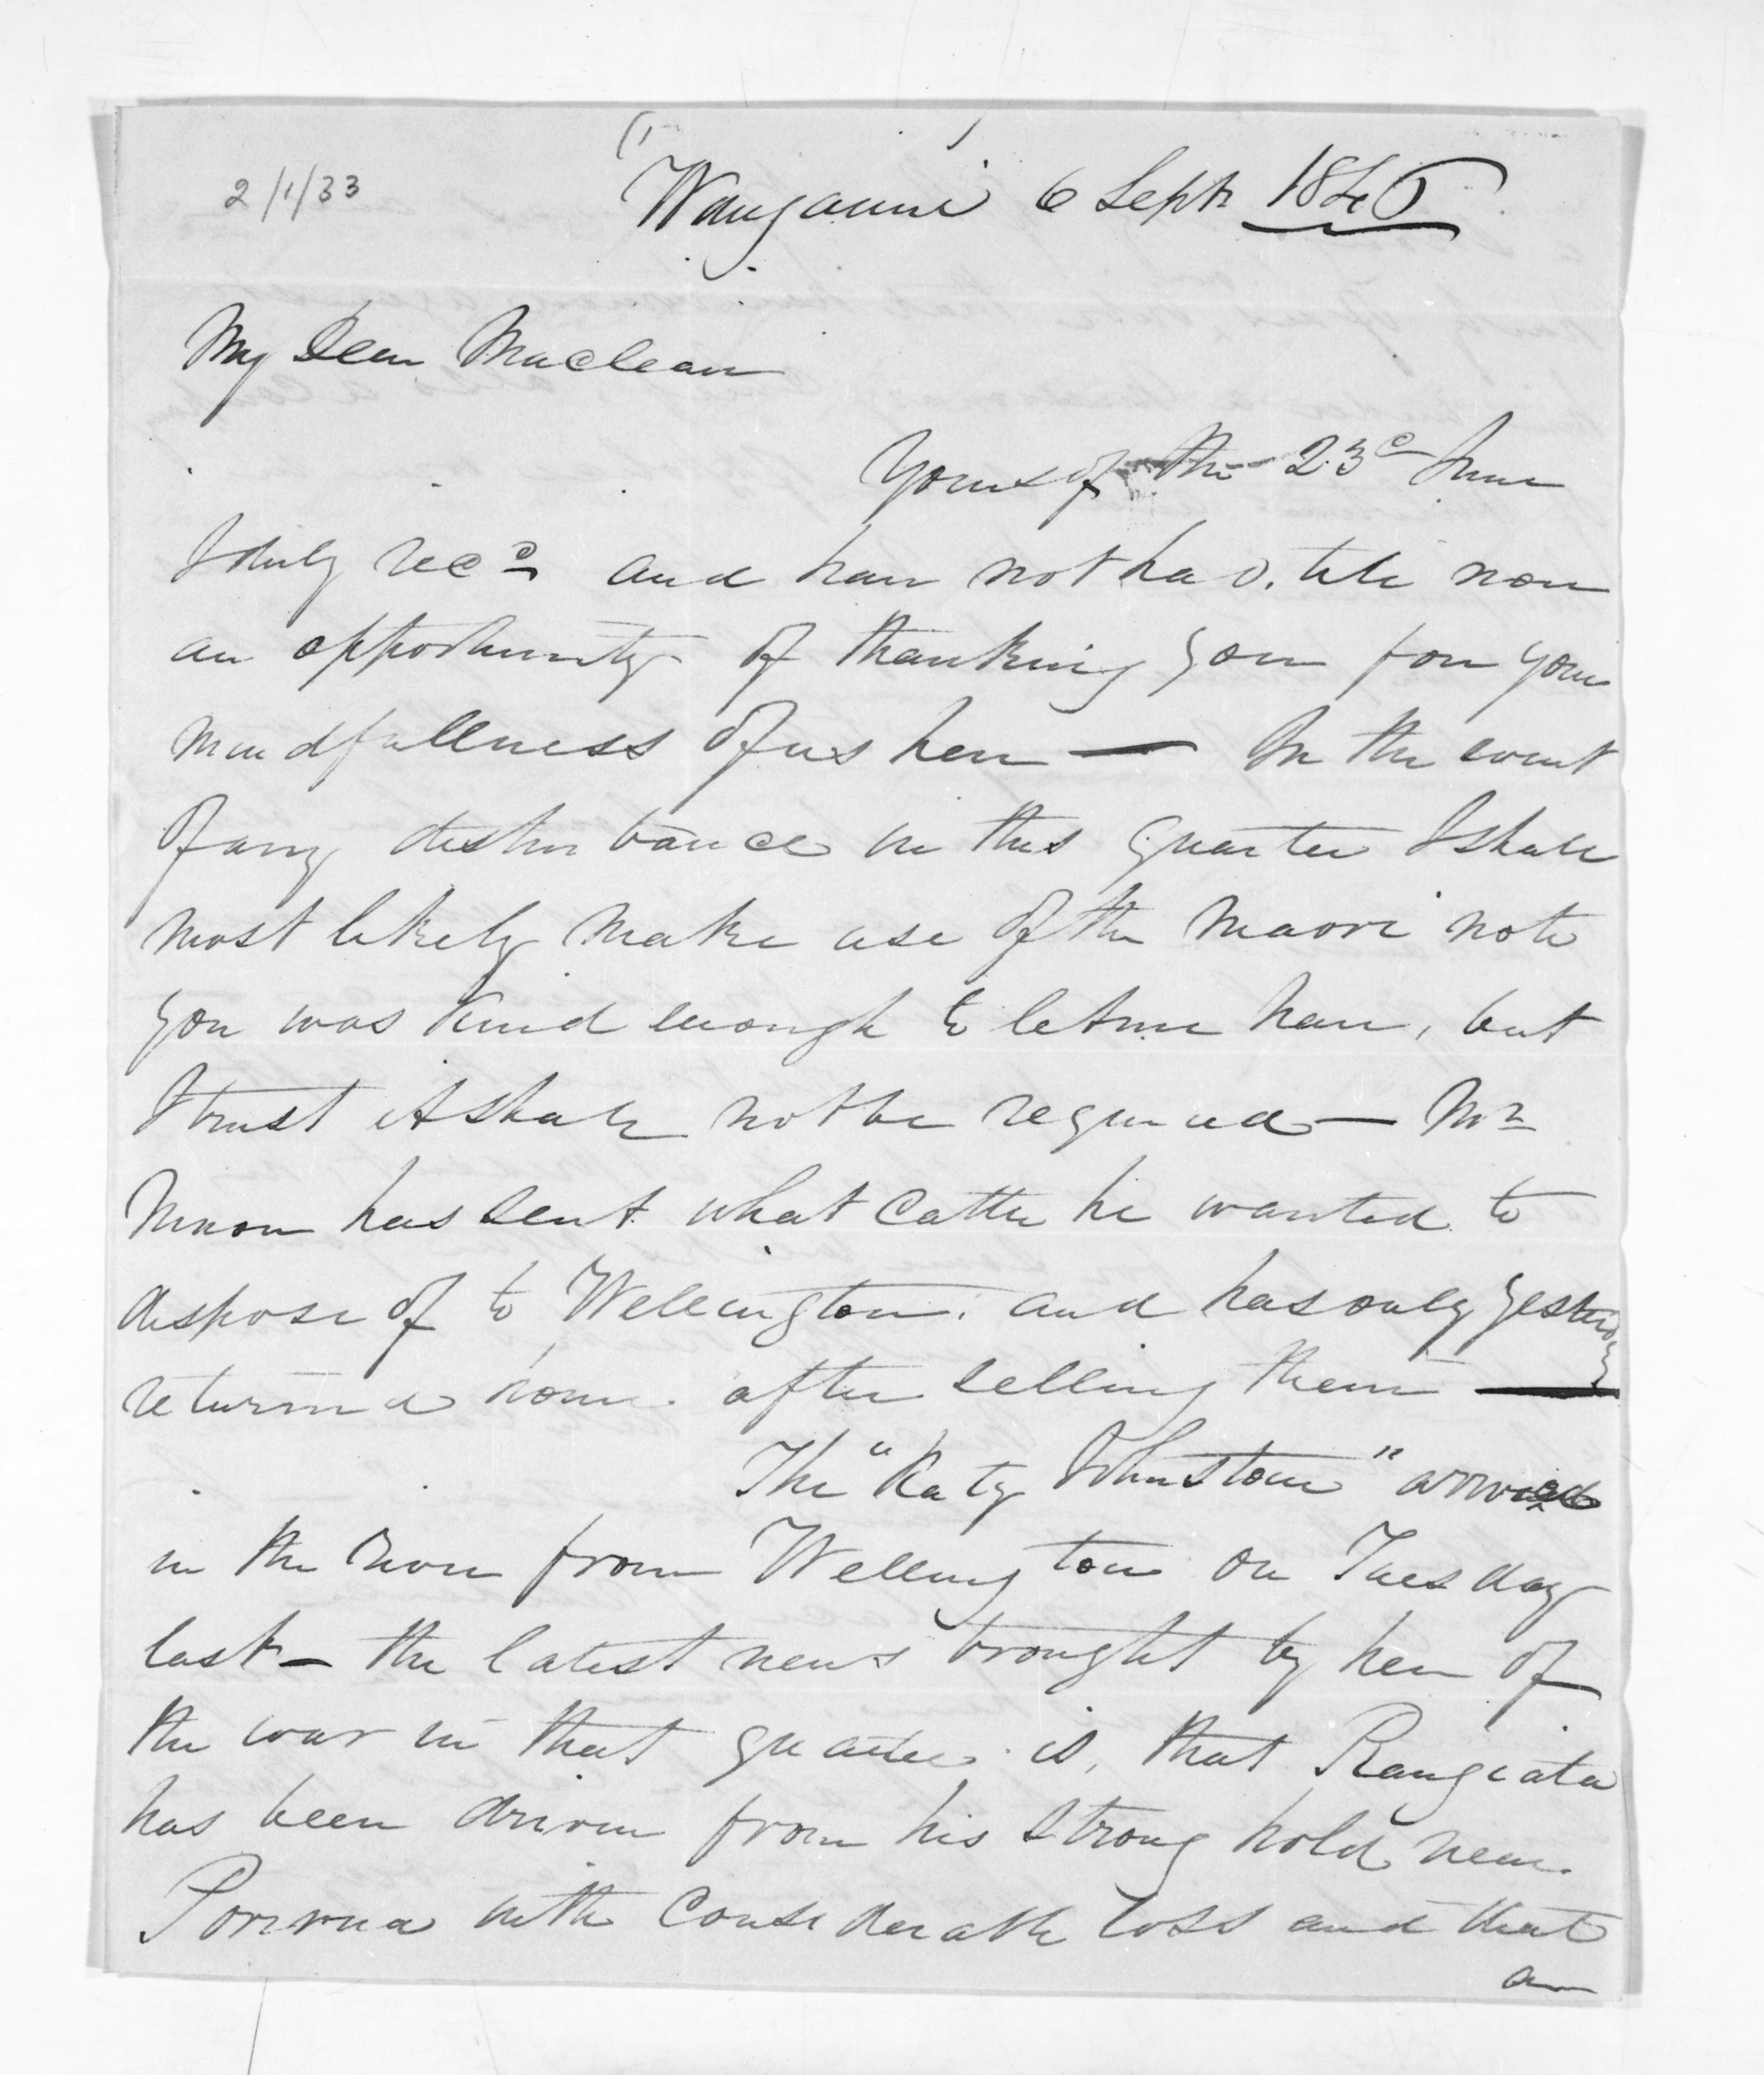 2/1/33
Wanganui 6 Septr 1846
My Dear Maclean
Yours of the 23d June
I duly recd and have not had till now
an opportunity of thanking you for your
mindfullness of us here — In the event
of any disturbance in this quarter I shall
most likely make use of the Maori note
you was kind enough to let me have, but
I trust it shall not be required — Mr
Nixon has sent what cattle he wanted to
dispose of to Wellington. and has only yesterday
returned home. after selling them —
The "Katy Johnstone" arrived
in the River from Wellington on Tuesday
last — the latest news brought by her of
the war in that quarter is, that Rangiata
has been driven from his strong hold near
Porirua with considerable loss and that